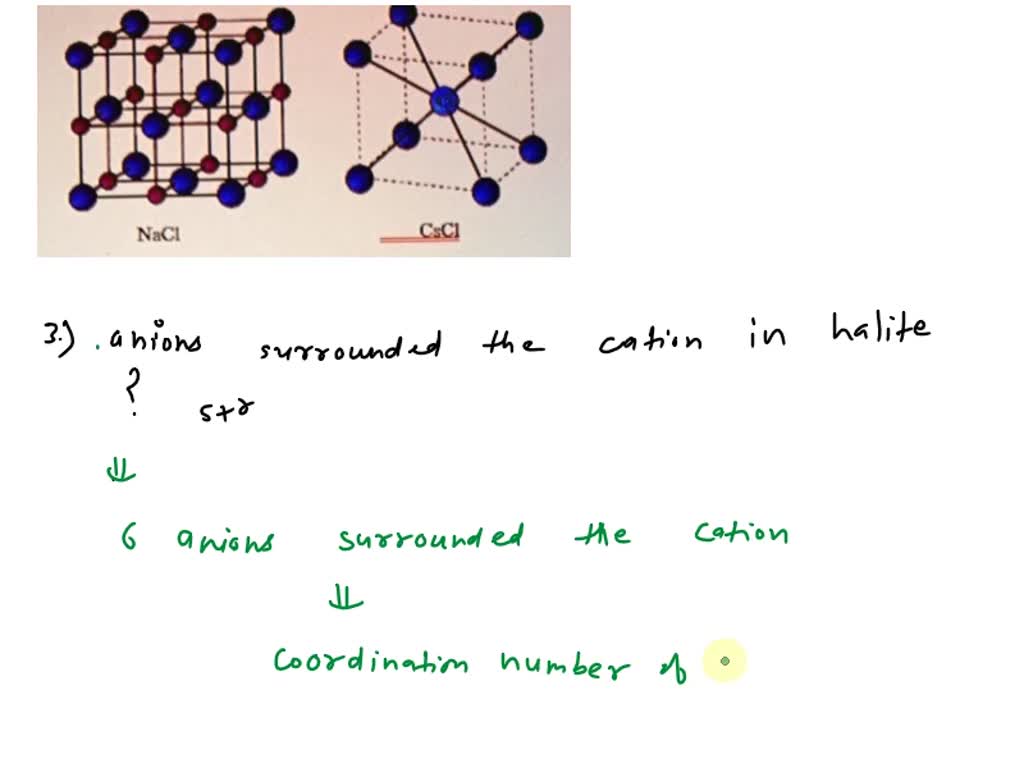 NaCl CsCl
3.) . anions surrounded the cation in halite
? str
⇓
6 anions surrounded the cation
⇓
Coordination number of